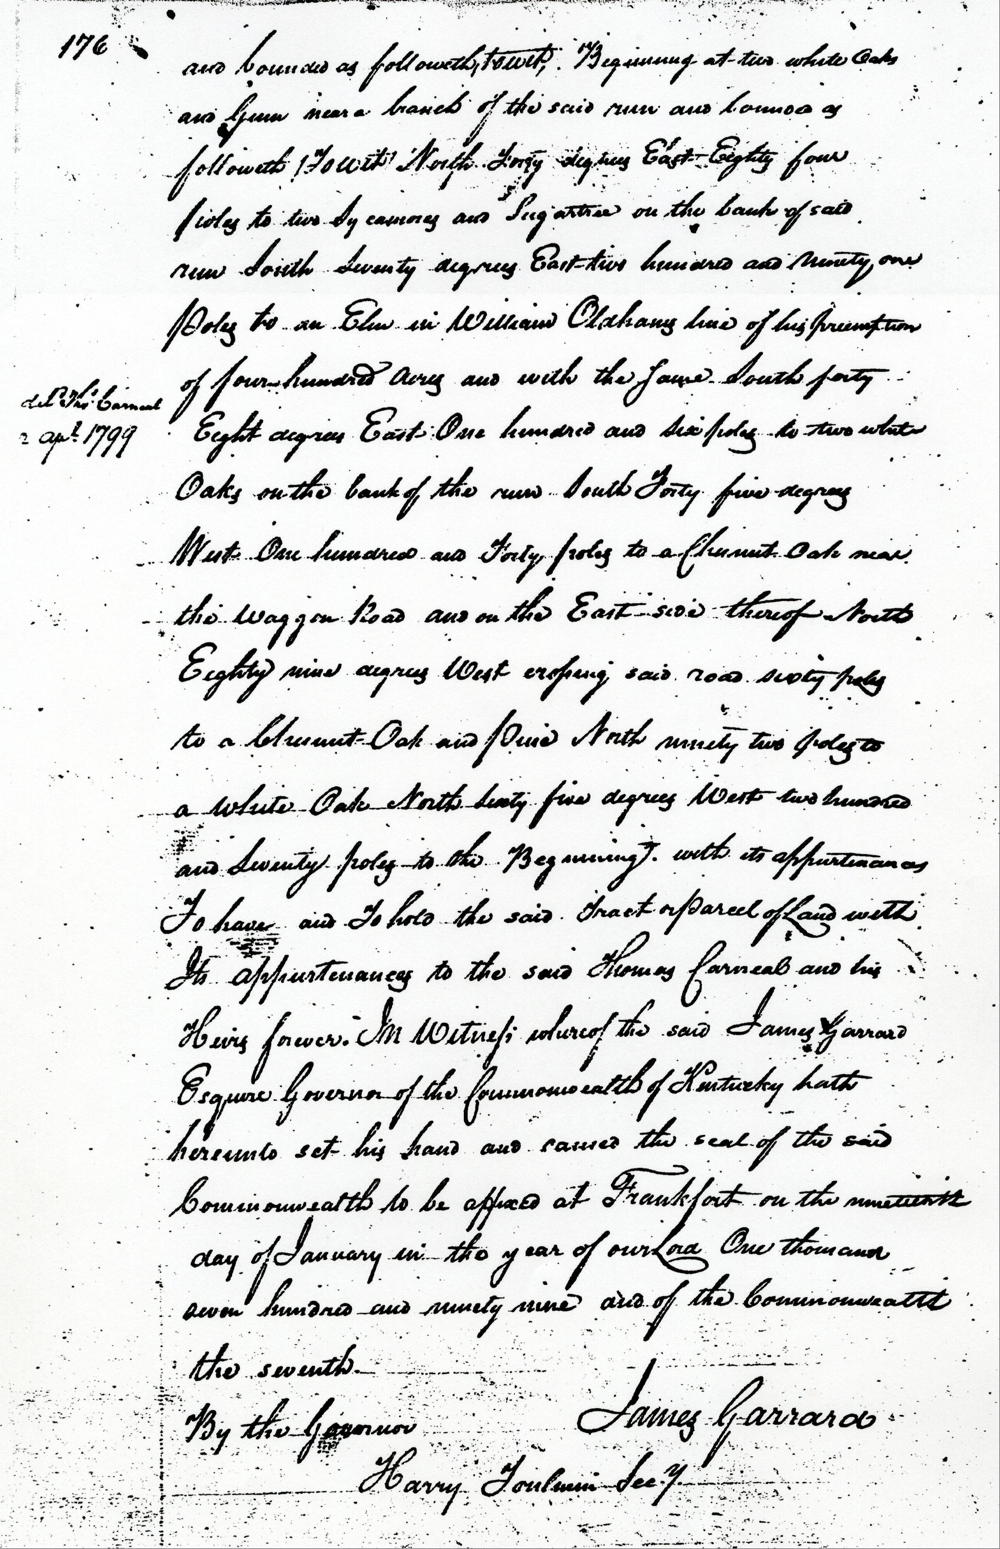 176
and bounded as followeth, towit, Beginning at two white Oaks
and Gum near a branch of the said run and bounded as
followeth (Towit) North Forty degrees East Eighty four
poles to two Sycamores and Sugartree on the bank of said
run South Seventy degrees East two hundred and ninety one
Poles to an Elm in William Oldhams line of his preemption
of four hundred Acres and with the Same South forty
deld. Thos. Carneal
2 apl. 1799
Eight degrees East One hundred and six poles to two white
Oaks on the bank of the run South Forty five degrees
West One hundred and Forty poles to a Chesnut Oak near
the Waggon Road and on the East side thereof North
Eighty nine degrees West crossing said road sixty poles
to a Chesnut Oak and Pine North ninety two poles to
a White Oak North Sixty five degrees West two hundred
and Seventy poles to the Beginning. with its appurtenances
To have and To hold the said Tract or Parcel of Land with
Its appurtenances to the said Thomas Carneal and his
Heirs forever. In Witness whereof the said James Garrard
Esquire Governor of the Commonwealth of Kentucky hath
hereunto set his hand and caused the seal of the said
Commonwealth to be affixed at Frankfort on the nineteenth
day of January in the year of our Lord One thousand
seven hundred and ninety nine and of the Commonwealth
the seventh.
By the Governor James Garrard
Harry Toulmin Secy.